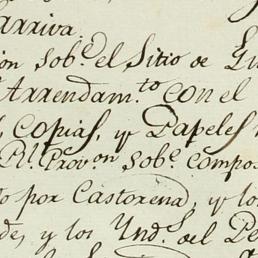 arriva.
ion sob.e el Sitio de
Arrendam.to con el
Copias, y Papeles
Rl. Prov.on sob.e compos
o por Castorena, y lo
de, y los Ynd.s del Pe